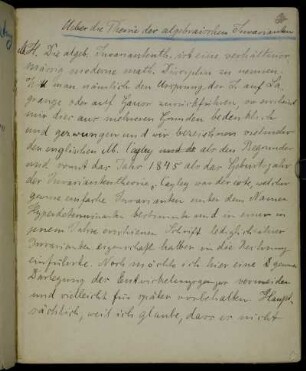 Ueber die Theorie der algebraischen Invarianten
M. H. Die algeb. Invariantenth. ist eine verhältniss-
mässig moderne math. Disciplin zu nennen.
Will man nämlich den Ursprung der Th. auf La
grange oder auf Gauss zurückführen, so erscheint
mir dies aus mehreren Gründen bedenklich
und gezwungen und wir bezeichnen vielmehr
den englischen M. Cayley und als den Begründer
und somit das Jahr 1845 als das Geburtsjahr
der Invariantentheorie. Cayley war der erste, welcher
gewisse einfache Invarianten unter dem Namen
Hyperdeterminanten bestimmte und in einer in
jenem Jahre erschienen Schrift lediglich ihrer
Invarianten eigenschaft halber in die Rechnung
einführte. Doch möchte ich hier eine
Darlegung der Entwickelungsgänge vermeiden
und vielleicht für später vorbehalten. Haupt-
sächlich, weil ich glaube, dass er nicht